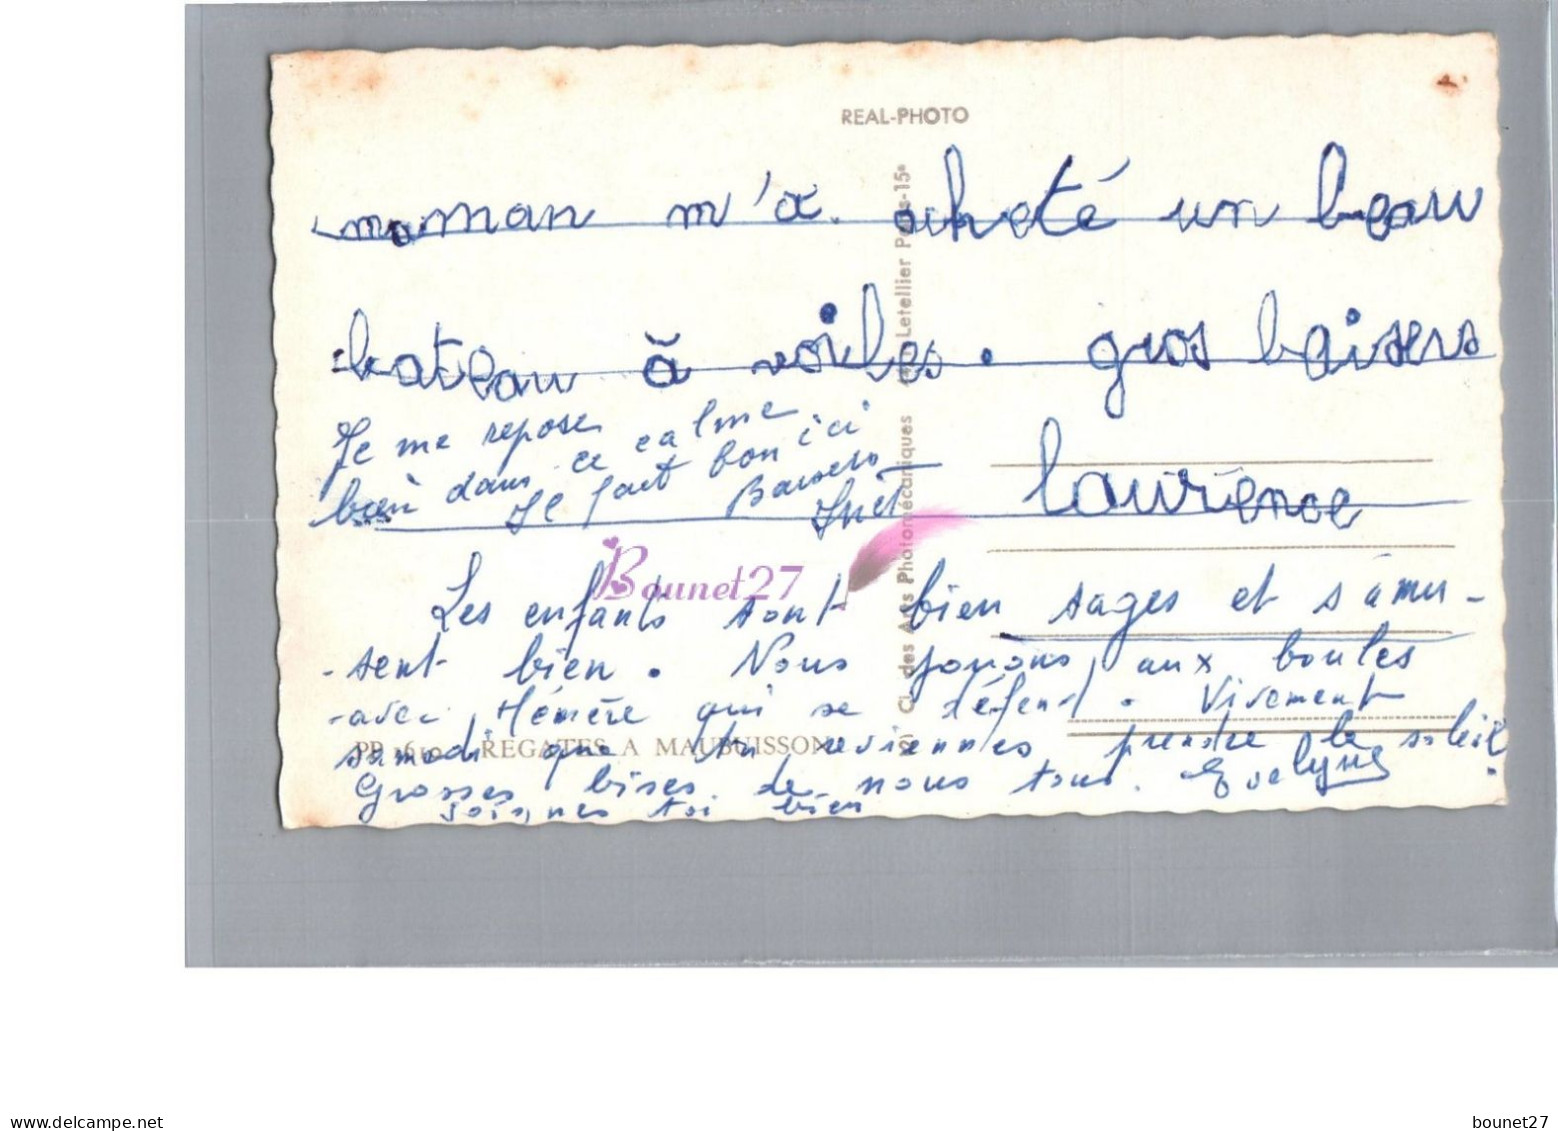 REAL-PHOTO
maman m'a acheté un beau
bateau à voiles. gros baisers
laurence
Je me repose
bien dans ce calme
Il fait bon ici
Baisers
Les enfants sont bien sages et s'amu-
-sent bien. Nous jouons aux boules
avec Mémère qui se défend. Vivement
samedi que tu reviennes prendre le soleil
Grosses bises de nous tous. Evelyne
soignes toi bien
REGATES A MAUBUISSON
Cl. des Arts Photomécaniques Letellier Paris-15e
Bounet27
www.delcampe.net
bounet27